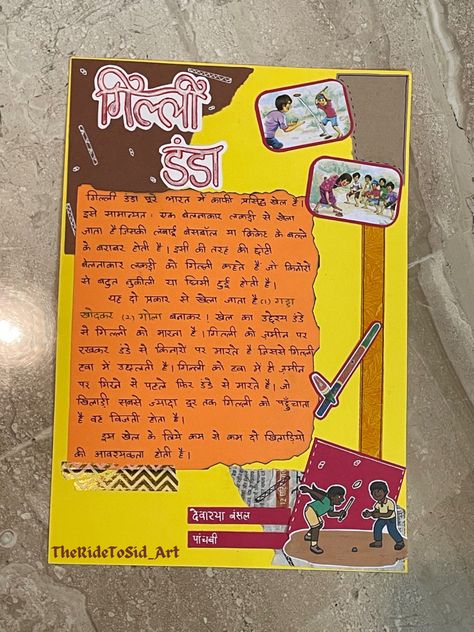 गिल्ली
डंडा
गिल्ली डंडा पूरे भारत में काफी प्रसिद्ध खेल है।
इसे सामान्यत: एक बेलनाकार लकड़ी से खेला
जाता है जिसकी लंबाई बेसबॉल या क्रिकेट के बल्ले
के बराबर होती है। इसी की तरह की छोटी
बेलनाकार लकड़ी को गिल्ली कहते हैं जो किनारों
से बहुत नुकीली या घिसी हुई होती है।
यह दो प्रकार से खेला जाता है (1) गड्ढा
खोदकर (2) गोला बनाकर। खेल का उद्देश्य डंडे
से गिल्ली को मारना है। गिल्ली को ज़मीन पर
रखकर डंडे से किनारों पर मारते हैं जिससे गिल्ली
हवा में उछलती है। गिल्ली को हवा में ही ज़मीन
पर गिरने से पहले फिर डंडे से मारते हैं। जो
खिलाड़ी सबसे ज्यादा दूर तक गिल्ली को पहुँचाता
है वह विजयी होता है।
इस खेल के लिये कम से कम दो खिलाड़ियों
की आवश्यकता होती है।
देवारया बंसल
पांचवी
TheRideToSid_Art